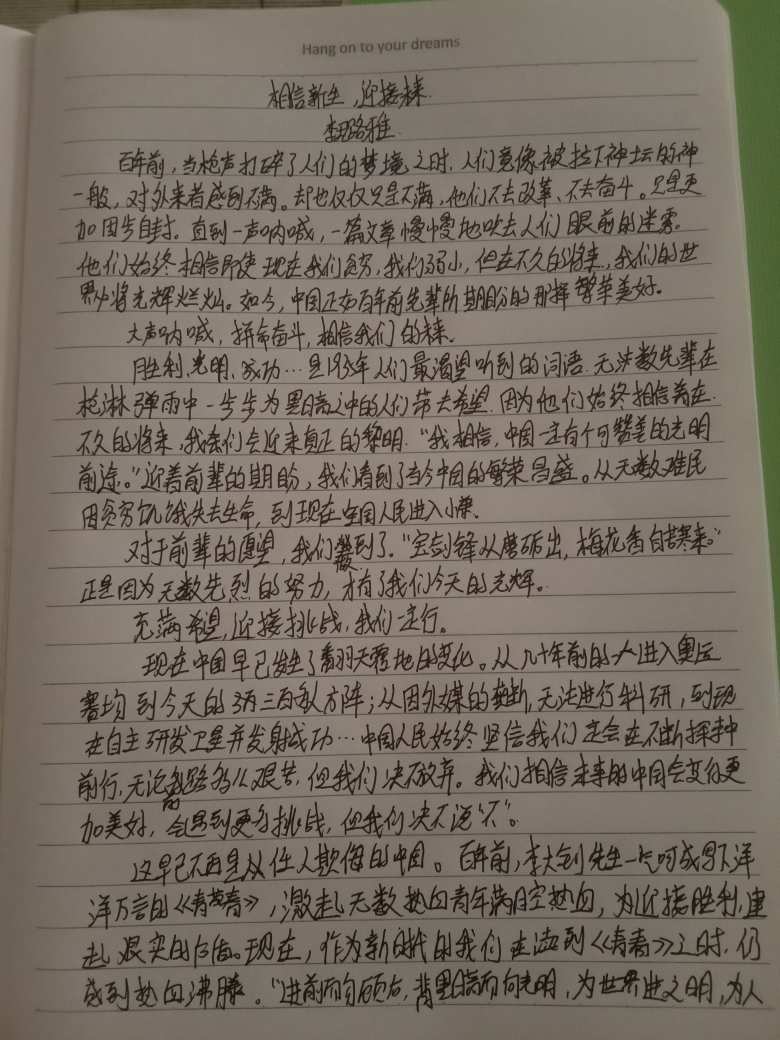 Hang on to your dreams
相信新生,迎接未来.
李珞雅.
百年前,当枪声打碎了人们的梦境之时,人们竟像被拉下神坛的神
一般,对外来者感到不满。却也仅仅只是不满,他们不去改革、不去奋斗。只是更
加固步自封。直到一声呐喊,一篇文章慢慢地吹去人们眼前的迷雾。
他们始终相信即使现在我们贫穷,我们弱小,但在不久的将来,我们的世
界必将光辉灿烂。如今,中国正如百年前先辈所期盼的那样繁荣美好。
大声呐喊,拼命奋斗,相信我们的未来。
胜利、光明、成功…是193年人们最渴望听到的词语.无法数先辈在
枪淋弹雨中一步步为黑暗之中的人们带去希望.因为他们始终相信着在
不久的将来,我们会迎来真正的黎明.“我相信,中国一定有个可赞美的光明
前途。”迎着前辈的期盼,我们看到了当今中国的繁荣昌盛。从无数难民
因贫穷饥饿失去生命,到现在全国人民进入小康.
对于前辈的愿望,我们做到了.“宝剑锋从磨砺出,梅花香自苦寒来。”
正是因为无数先烈的努力,才有了我们今天的光辉。
充满希望,迎接挑战,我们一定行。
现在中国早已发生了翻天覆地的变化。从几十年前的一人进入奥运
赛场到今天的三百多人方阵;从因外媒的垄断,无法进行科研,到现
在自主研发卫星并发射成功…中国人民始终坚信我们定会在不断探索中
前行,无论前路多么艰苦,但我们决不放弃。我们相信未来的中国会变得更
加美好,会遇到更多挑战,但我们决不说“不”。
这早已不再是从任人欺侮的中国。百年前,李大钊先生一气呵成写下洋
洋万言的《青春》,激起无数热血青年满腔热血,为迎接胜利,建
起坚实的信念。现在,作为新时代的我们在读到《青春》之时,仍
感到热血沸腾。“进前而勿顾后,背黑暗而向光明,为世界进文明,为人